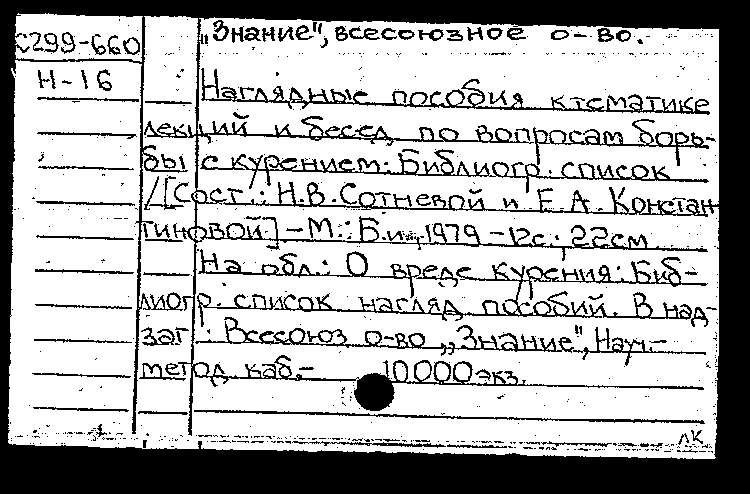 „Знание", всесоюзное о-во.
С299-660
Н-16
Наглядные пособия к тематике
лекций и бесед по вопросам борь-
бы с курением: Библиогр. список
/[Сост.: Н.В.Сотневой и Е.А. Констан
тиновой] – М.: Б.и., 1979 – 12с.; 22см
На обл.: О вреде курения: Биб-
лиогр. список нагляд пособий. В над-
заг: Всесоюз о-во „Знание", Науч.-
метод каб.– 10000экз.
лк